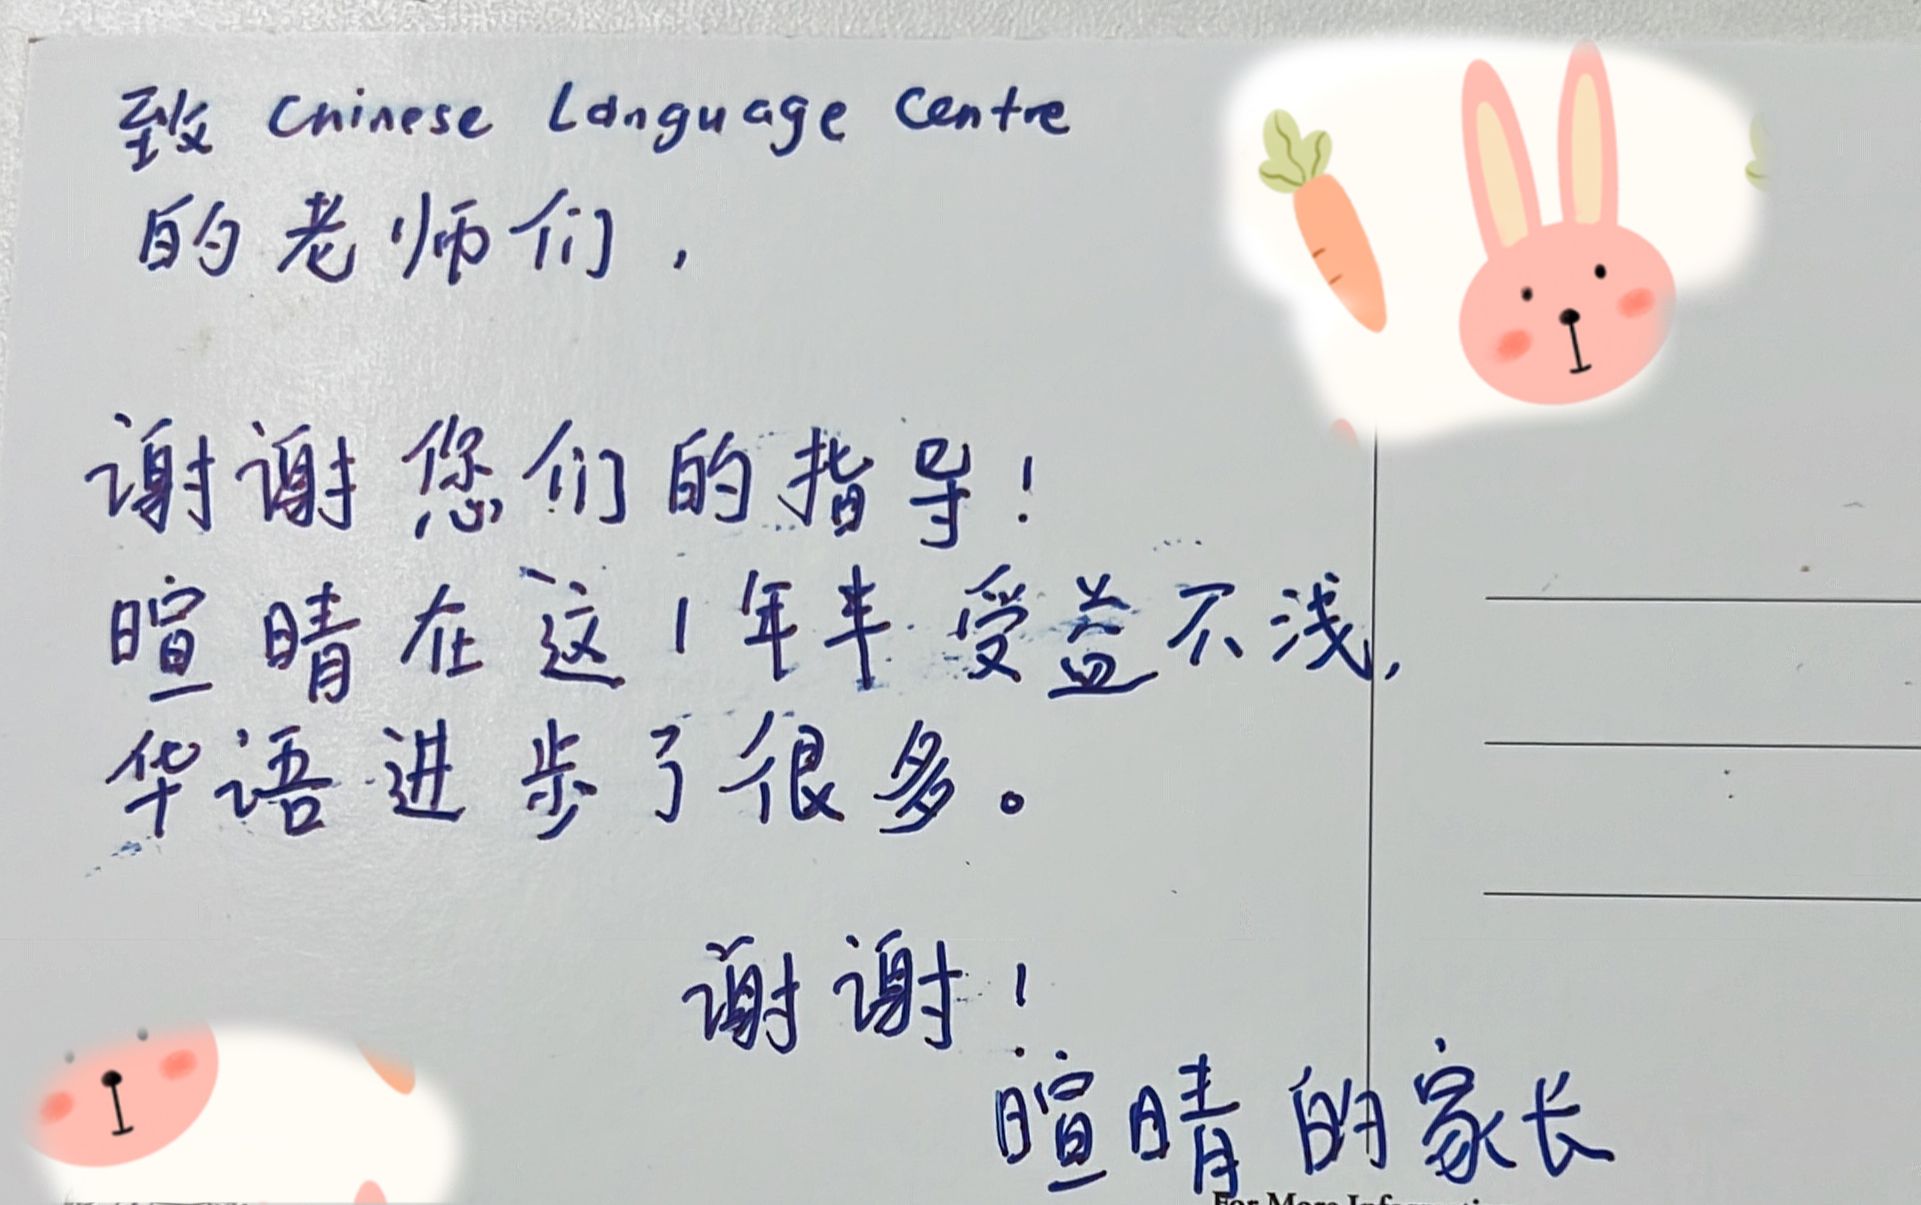 致 Chinese Language Centre
的老师们,
谢谢您们的指导!
暄晴在这1年半受益不浅,
华语进步了很多。
谢谢!
暄晴的家长
For More